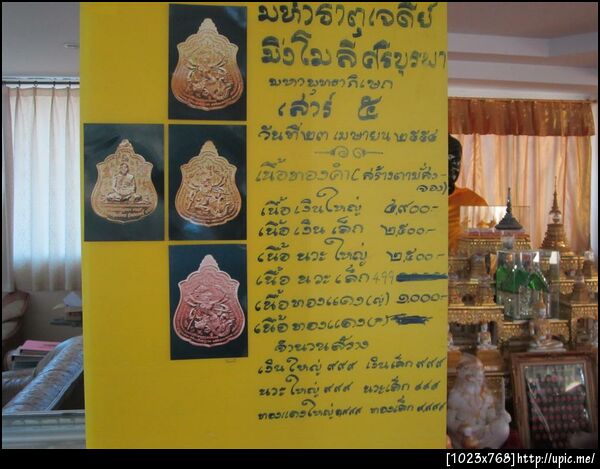 มหาธาตุเจดีย์
มิ่งโมลีศรีบูรพา
มหาพุทธาภิเษก
เสาร์ ๕
วันที่ ๒๓ เมษายน ๒๕๕๔
เนื้อทองคำ (สร้างตามสั่ง-
จอง)
เนื้อเงินใหญ่ ๕,๙๐๐.-
เนื้อเงินเล็ก ๒๕๐๐.-
เนื้อนวะใหญ่ ๒,๕๐๐.-
เนื้อนวะเล็ก 499
เนื้อทองแดง(ญ) ๑,๐๐๐.-
เนื้อทองแดง(ล)
จำนวนสร้าง
เงินใหญ่ ๙๙๙ เงินเล็ก ๙๙๙
นวะใหญ่ ๙๙๙ นวะเล็ก ๙๙๙
ทองแดงใหญ่ ๑๙๙๙ ทองเล็ก ๙๙๙๙
[1023x768]http://upic.me/